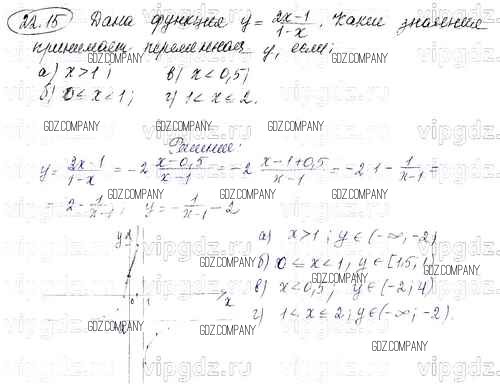 22.15 Дана функция y = 2x-1/1-x. Какие значения
принимает переменная y, если:
а) x>1; в) x<0,5;
б) 0≤x<1; г) 1<x≤2.
Решение:
y = 2x-1/1-x = -2 x-0,5/x-1 = -2 x-1+0,5/x-1 = -2 1 - 1/x-1 =
= 2 - 1/x-1; y = - 1/x-1 - 2
y
0 1 x
а) x>1; y∈(-∞; -2)
б) 0≤x<1, y∈[15,
в) x<0,5; y∈(-2; 4)
г) 1<x≤2; y∈(-∞, -2).
GDZ.COMPANY
vipgdz.ru